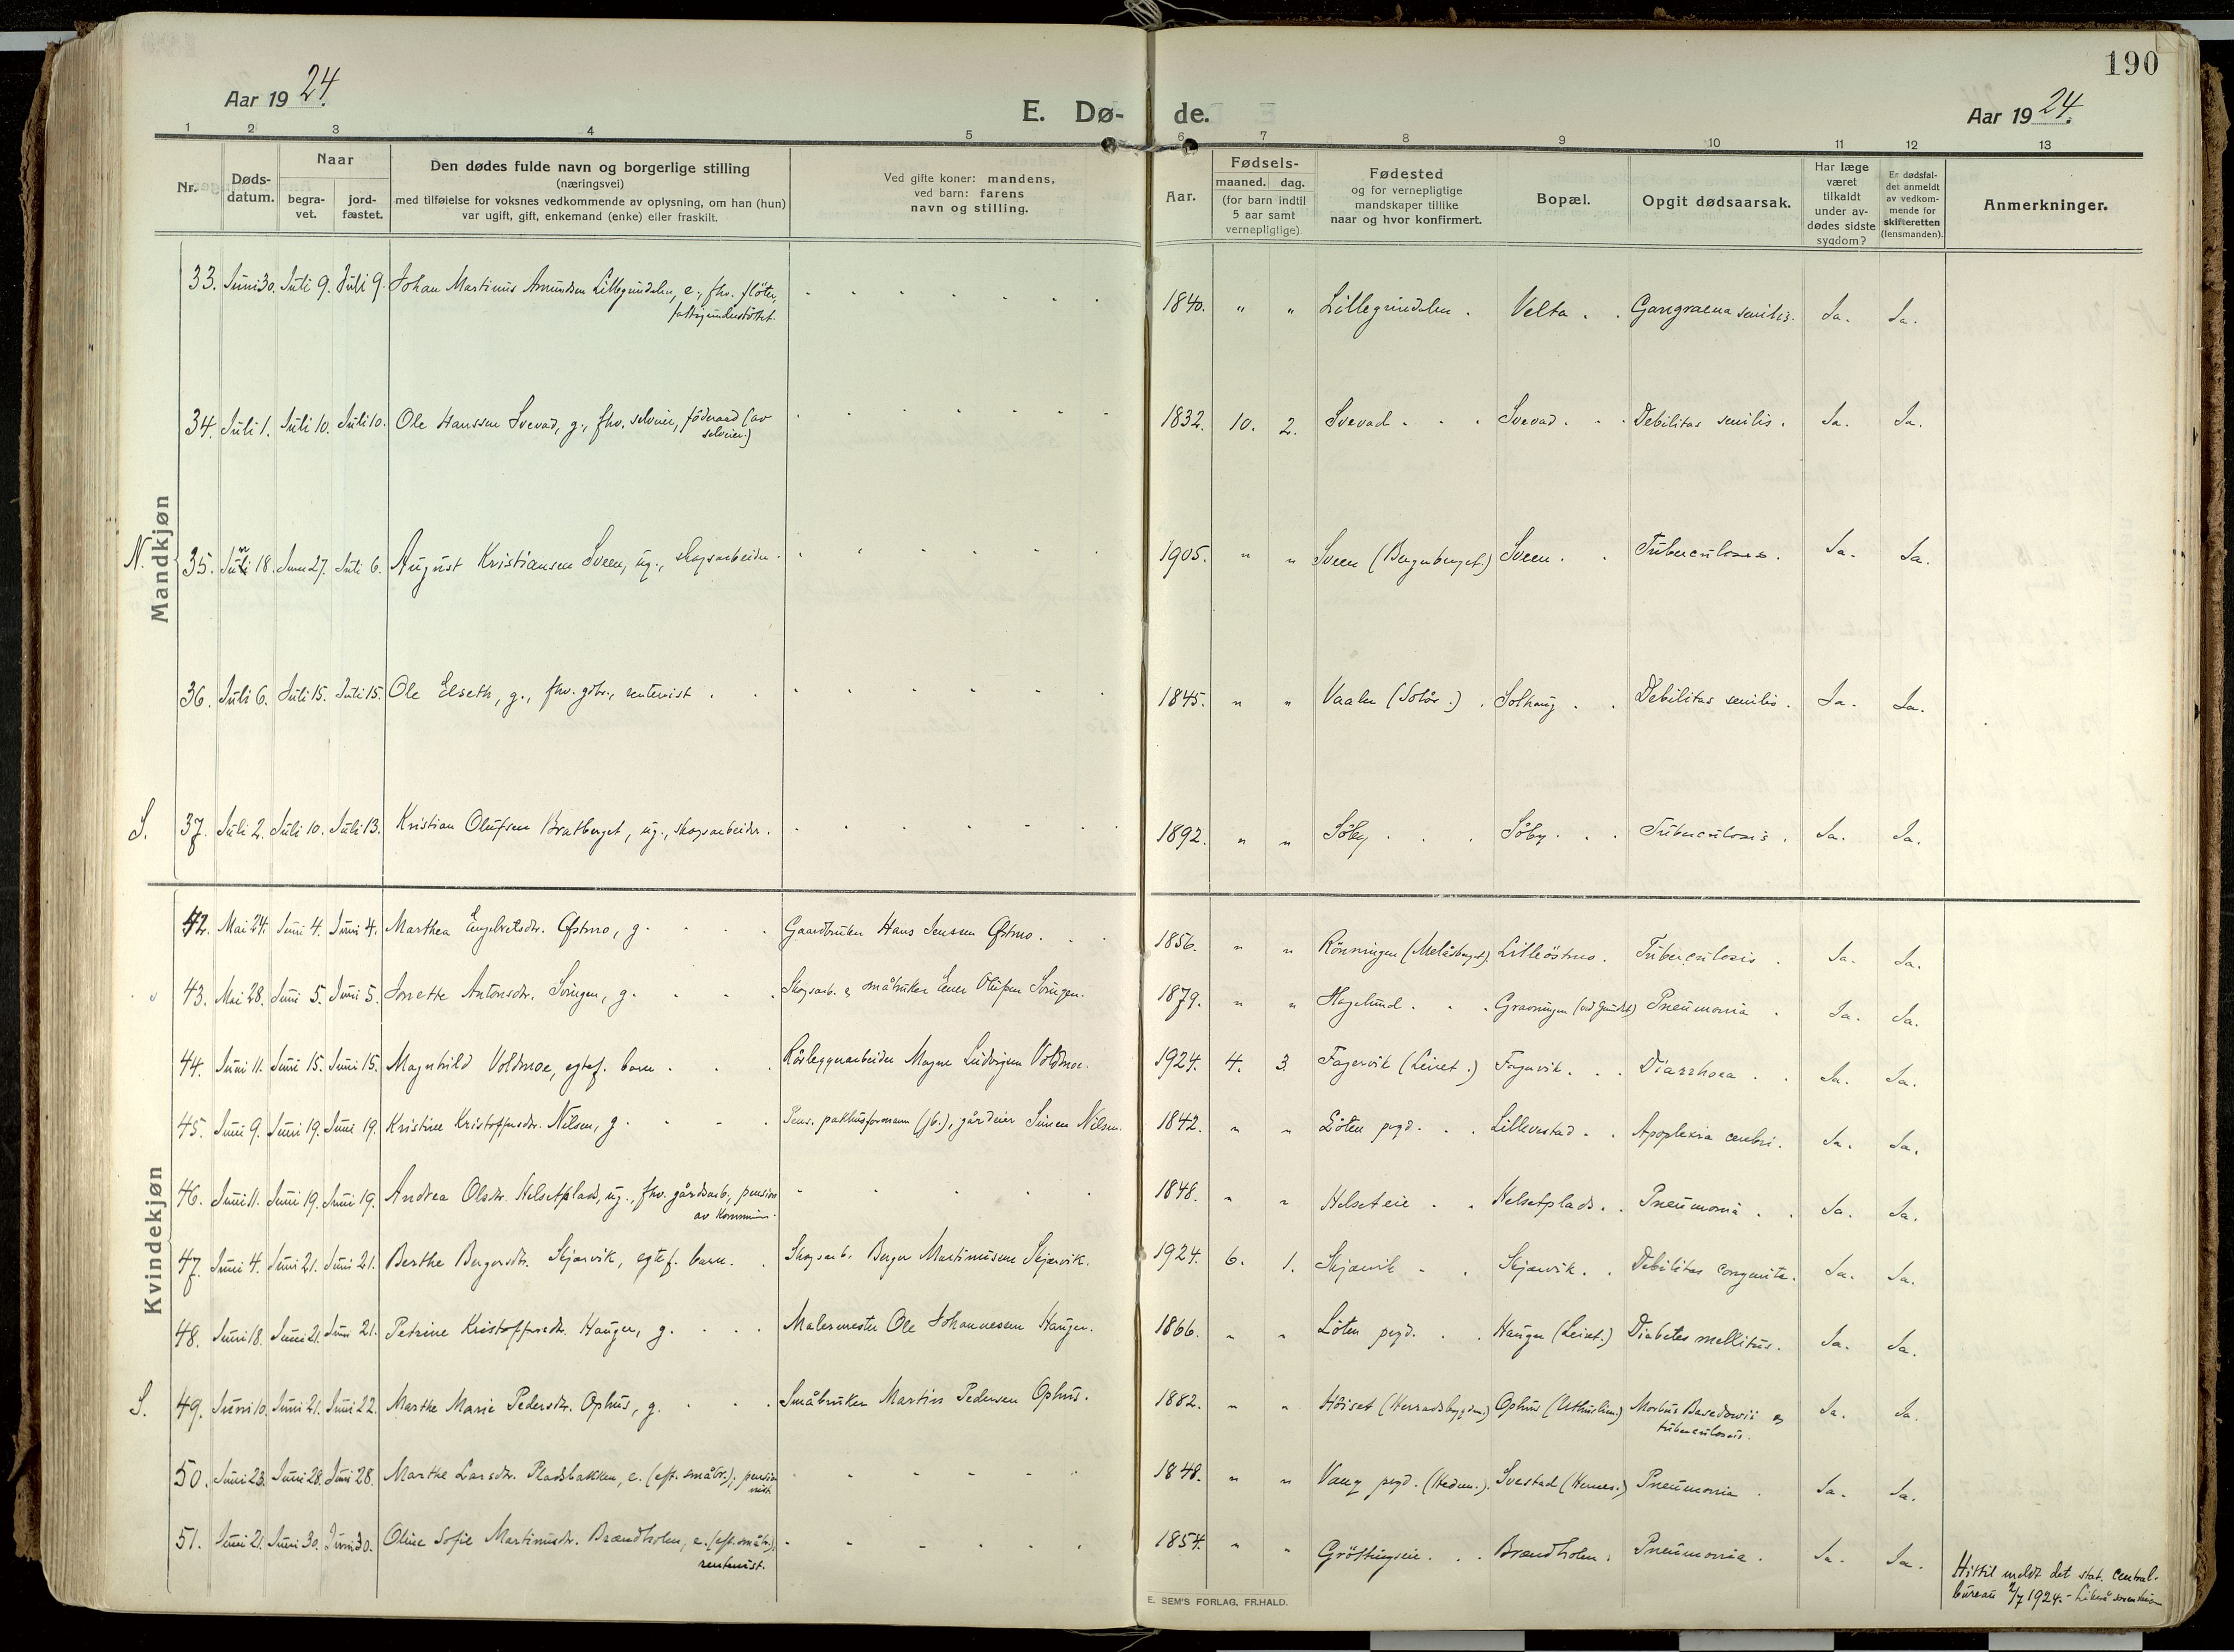 190
Aar 19 24.
E. Dø- de.
Aar 19 24.
1 2 3 4 5 6 7 8 9 10 11 12 13
Nr.
Døds-
datum.
Naar
begra-
vet.
jord-
fæstet.
Den dødes fulde navn og borgerlige stilling
(næringsvei)
med tilføielse for voksnes vedkommende av oplysning, om han (hun)
var ugift, gift, enkemand (enke) eller fraskilt.
Ved gifte koner: mandens,
ved barn: farens
navn og stilling.
Aar.
Fødsels-
maaned. dag.
(for barn indtil
5 aar samt
vernepligtige)
Fødested
og for vernepligtige
mandskaper tillike
naar og hvor konfirmert.
Bopæl.
Opgit dødsaarsak.
Har læge
været
tilkaldt
under av-
dødes sidste
sygdom?
Er dødsfal-
det anmeldt
av vedkom-
mende for
skifteretten
(lensmanden).
Anmerkninger.
Mandkjøn
33. Juni 30. Juli 9. Juli 9. Johan Martinus Amundsen Lillegrindalen, e., fhv. fløter, 1840. " " Lillegrindalen. Velta. Gangraena senilis. Ja. Ja.
fattigunderstøttet.
34. Juli 1. Juli 10. Juli 10. Ole Hanssen Svevad, g., fhv. selveier, føderaad (av 1832. 10. 2. Svevad. Svevad. Debilitas senilis. Ja. Ja.
selveier.)
N. 35. Juni 18. Juni 27. Juli 6. August Kristiansen Sveen, ug., skogsarbeider. 1905. " " Sveen (Bergerberget.) Sveen. Tuberculosis. Ja. Ja.
36. Juli 6. Juli 15. Juli 15. Ole Elseth, g., fhv. gdbr., rentenist. 1845. " " Vaaler (Solør.) Solhaug. Debilitas senilis. Ja. Ja.
S. 37. Juli 2. Juli 10. Juli 13. Kristian Olufsen Bratberget, ug., skogsarbeider. 1892. " " Søby. Søby. Tuberculosis. Ja. Ja.
Kvindekjøn
42. Mai 24. Juni 4. Juni 4. Marthea Engebretsdtr. Østmo, g. Gaardbruker Hans Jenssen Østmo. 1856. " " Rønningen (Melåsberget). Lilleøstmo. Tuberculosis. Ja. Ja.
43. Mai 28. Juni 5. Juni 5. Jonette Antonsdtr. Svingen, g. Skogsarb. og småbruker Ener Olufsen Svingen. 1879. " " Hagelund. Graaningen Pneumonia. Ja. Ja.
44. Juni 11. Juni 15. Juni 15. Magnhild Voldmoe, egtef. barn. Rørleggerarbeider Magne Ludvigsen Voldmoe. 1924. 4. 3. Fagervik (Leiret.) Fagervik. Diarrhoea. Ja. Ja.
45. Juni 9. Juni 19. Juni 19. Kristine Kristoffersdtr. Nilsen, g. Pens. pakhusformann (jb.), gårdeier Simen Nilsen. 1842. " " Løten prgd. Lillevestad. Apoplexia cerebri. Ja. Ja.
46. Juni 11. Juni 19. Juni 19. Andrea Olsdtr. Helsetplads, ug., fhv. gårdsarb., pension 1848. " " Helseteie. Helsetplads. Pneumonia. Ja. Ja.
av kommun.
47. Juni 4. Juni 21. Juni 21. Berthe Bergersdtr. Skjærvik, egtef. barn. Skogsarb. Berger Martinusen Skjærvik. 1924. 6. 1. Skjærvik. Skjærvik. Debilitas congenita. Ja. Ja.
48. Juni 18. Juni 21. Juni 21. Petrine Kristoffersdtr. Haugen, g. Malermester Ole Johannessen Haugen. 1866. " " Løten prgd. Haugen (Leiret.) Diabetes mellitus. Ja. Ja.
S. 49. Juni 10. Juni 21. Juni 22. Marthe Marie Pedersdtr. Ophus, g. Småbruker Martin Pedersen Ophus. 1882. " " Høiset (Herradsbygden.) Ophus (Uthuslien.) Morbus Basedowii og Ja. Ja.
tuberculosis.
50. Juni 23. Juni 28. Juni 28. Marthe Larsdtr. Pladsbakken, e. (eft. småbr.); pension 1848. " " Vang prgd. (Hedem.). Svestad (Hernes.) Pneumonia. Ja. Ja.
nist.
51. Juni 21. Juni 30. Juni 30. Oline Sofie Martinusdtr. Brændholen, e. (eft. småbr.), 1854. " " Grøttingseie. Brændholen. Pneumonia. Ja. Ja.
rentenist.
Hittil meldt det stat. central-
bureau 2/7 1924.
E. SEM'S FORLAG, FR.HALD.